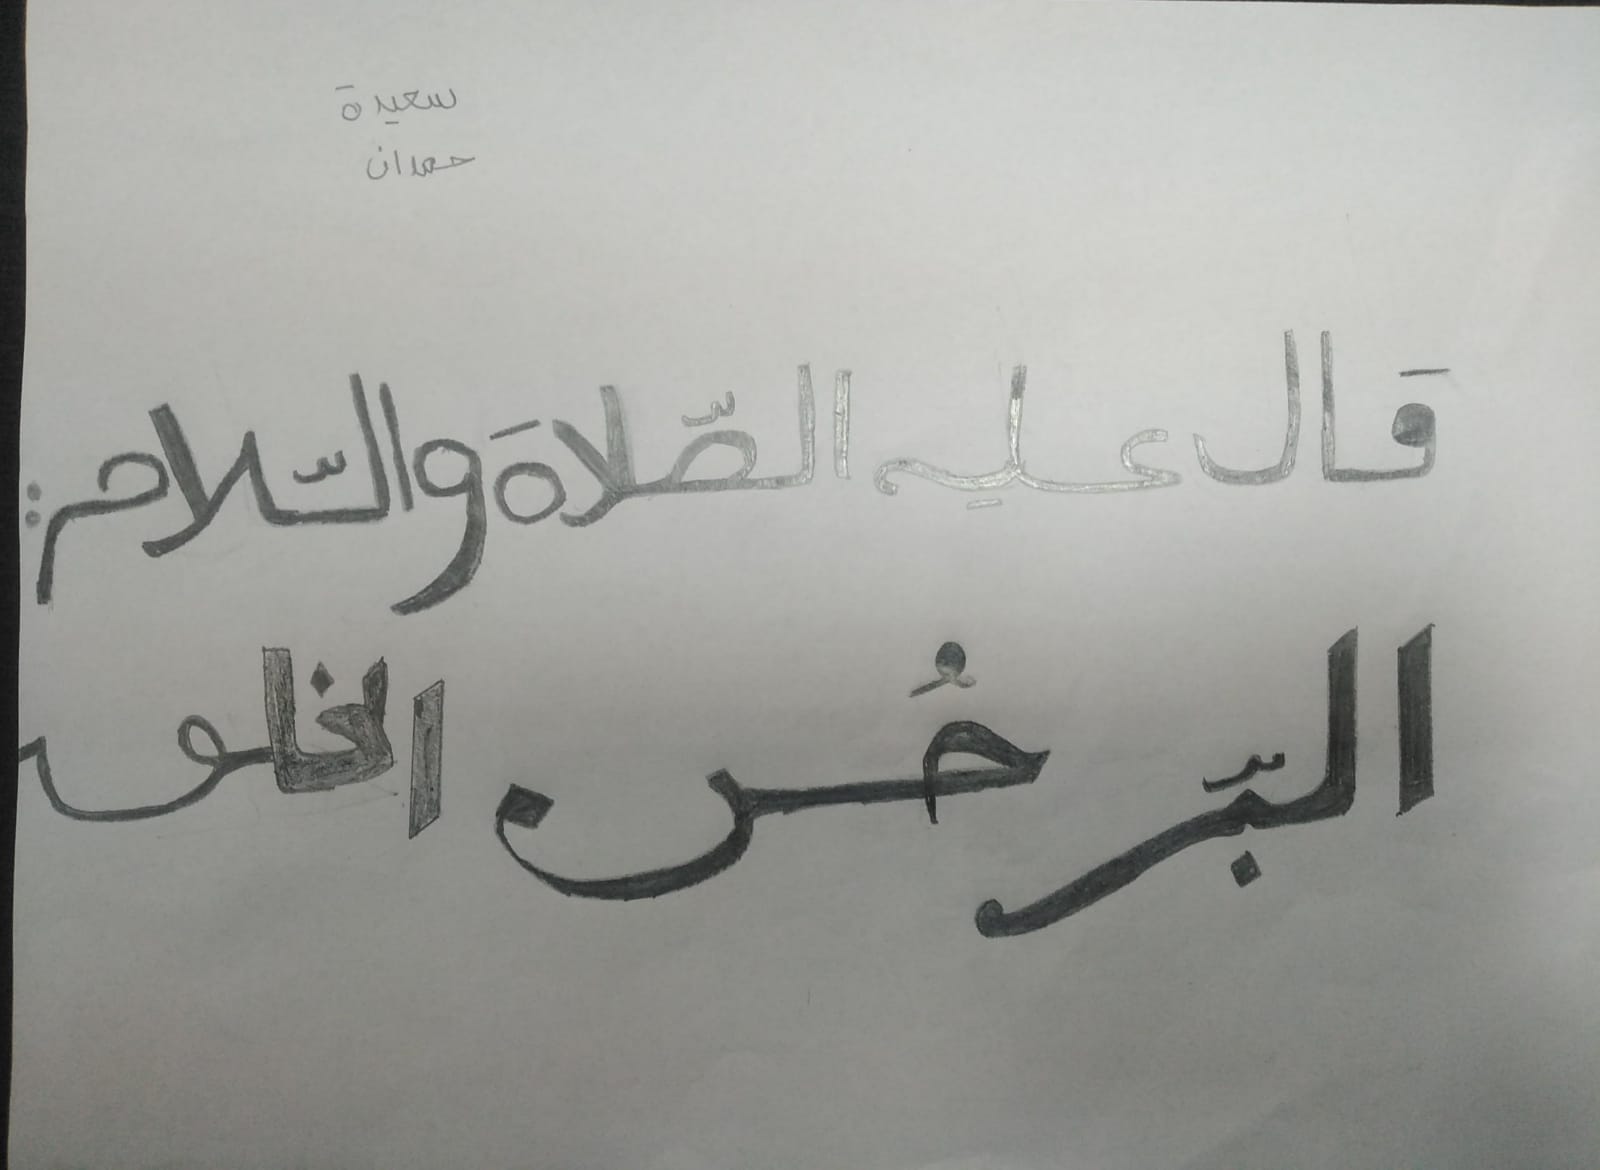 سعيدة
حمدان
قال عليه الصّلاة والسّلام:
البّر حُسن الخلق